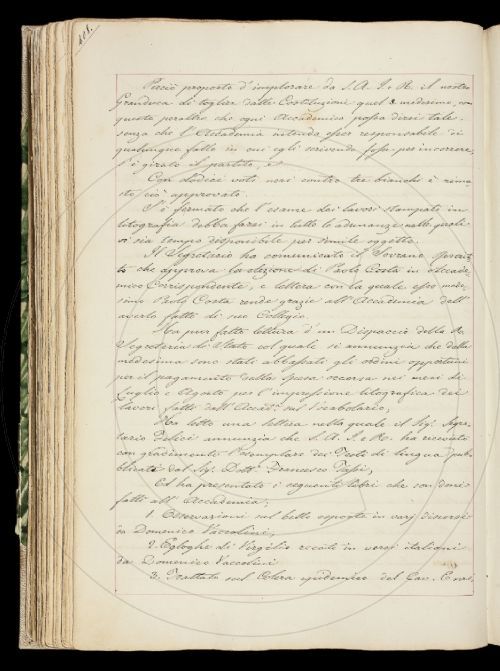 401.
Perciò proposto d'implorare da S. A. I. e R. il nostro
Granduca di togliere dalle Costituzioni quel § medesimo, con
questo peraltro che ogni Accademico possa dirsi tale
senza che l'Accademia intenda esser responsabile di
qualunque fallo in cui egli scrivendo fosse per incorrere,
s'è girato il partito, e
Con dodici voti neri contro tre bianchi è rima-
sto ciò approvato.
S'è fermato che l'esame dei lavori stampati in
litografia debba farsi in tutte le adunanze nelle quali
vi sia tempo disponibile per simile oggetto.
Il Segretario ha comunicato il Sovrano
to che approva la elezione di Paolo Costa in Accade-
mico Corrispondente, e lettera con la quale esso mede-
simo Paolo Costa rende grazie all'Accademia dell'
averlo fatto di suo Collegio.
Ha pur fatta lettura d'un Dispaccio della R.
Segreteria di Stato col quale si annunzia che dalla
medesima sono stati abbassati gli ordini opportuni
per il pagamento della spesa occorsa nei mesi di
Luglio e Agosto per l'impressione litografica dei
lavori fatti dall'Accad. sul Vocabolario,
Ha letto una lettera nella quale il Sig. Segre-
tario Felici annunzia che S. A. I. e R. ha ricevuto
con gradimento l'esemplare dei Testi di lingua pub-
blicati dal Sig. Dott. Francesco Tassi,
Ed ha presentato i seguenti libri che son doni
fatti all'Accademia;
1. Osservazioni sul bello esposte in varj discorsi
da Domenico Vaccolini,
2. Egloghe di Virgilio recate in versi italiani
da Domenico Vaccolini
3. Trattato sul Colera epidemico del Cav.